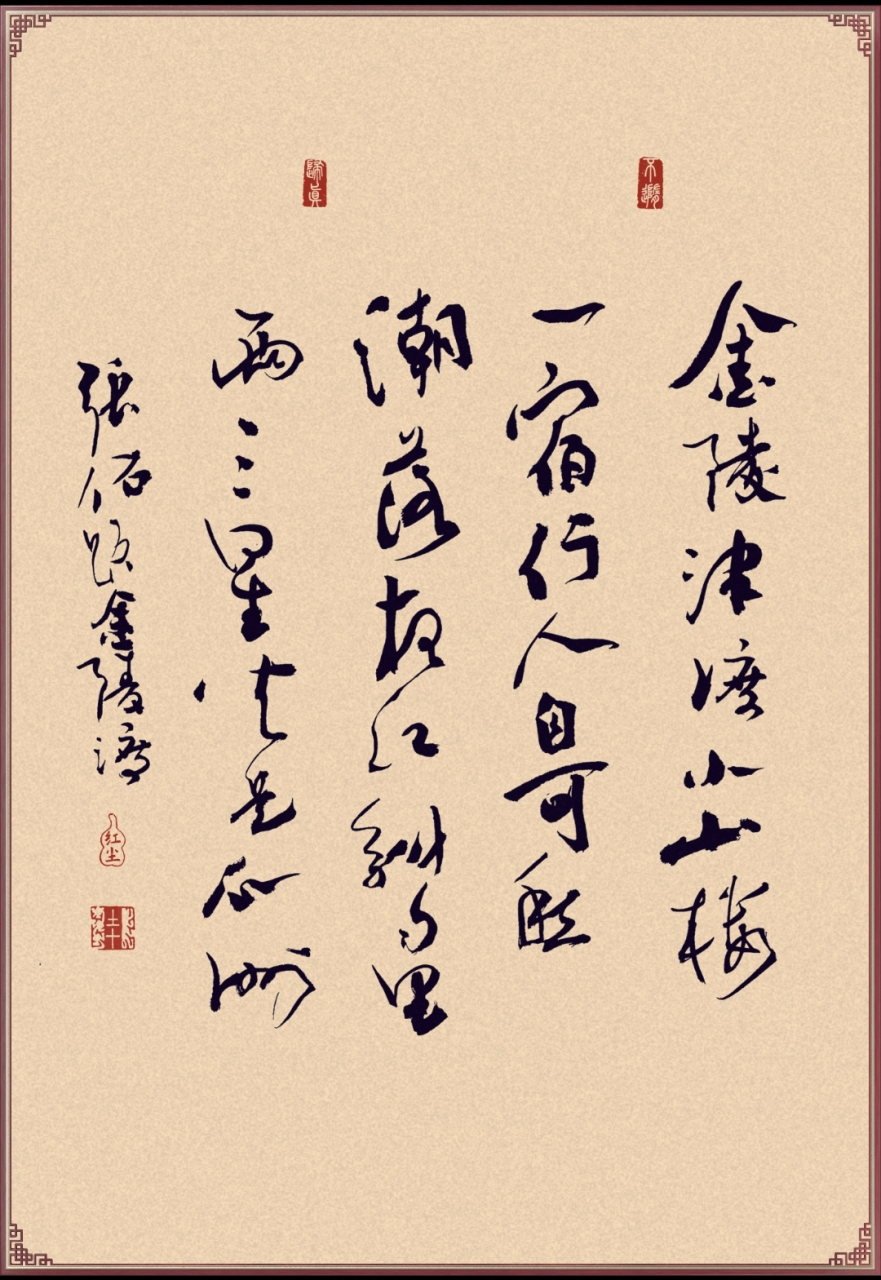 金陵津渡小山楼
一宿行人自可愁
潮落夜江斜月里
兩三星火是瓜洲
張佑题金陵渡
歸真
红尘